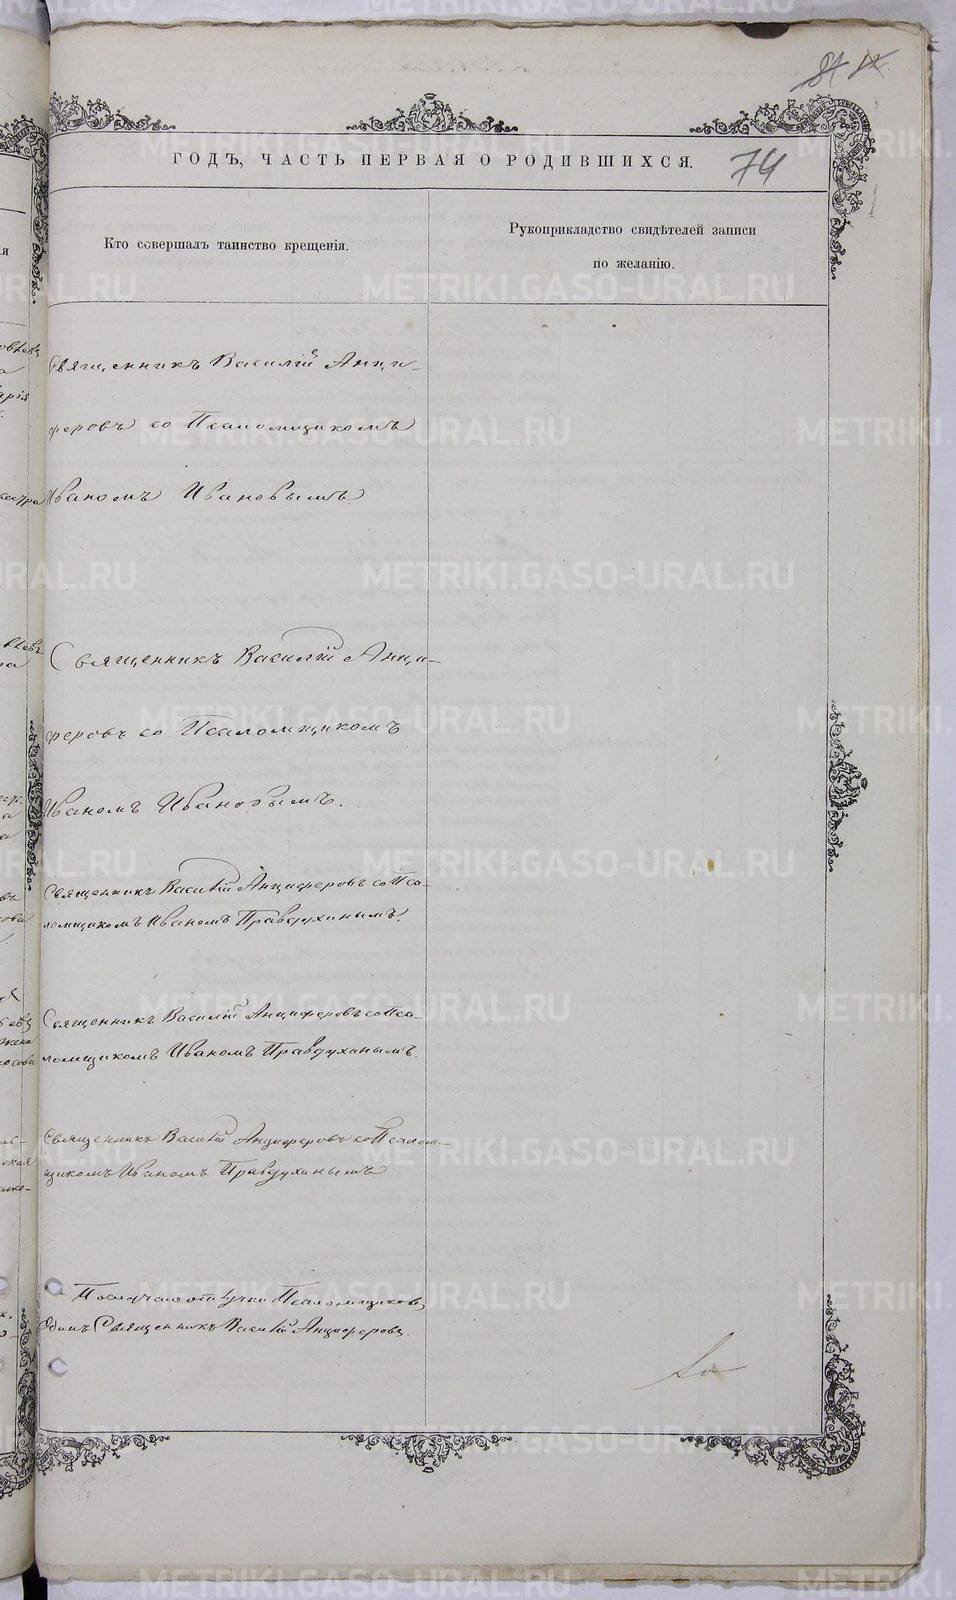 74
ГОДЪ, ЧАСТЬ ПЕРВАЯ О РОДИВШИХСЯ.
Кто совершалъ таинство крещенія.
Рукоприкладство свидѣтелей записи
по желанію.
Священникъ Василій Анци-
феровъ со Псаломщикомъ
Иваномъ Ивановымъ.
Священникъ Василій Анци-
феровъ со Псаломщикомъ
Иваномъ Ивановымъ.
Священникъ Василій Анциферовъ со Пса-
ломщикомъ Иваномъ Правдухинымъ.
Священникъ Василій Анциферовъ со Пса-
ломщикомъ Иваномъ Правдухинымъ.
Священникъ Василій Анциферовъ со Псалом-
щикомъ Иваномъ Правдухинымъ
По случаю отлучки Псаломщиковъ
Одинъ Священникъ Василій Анциферовъ.
METRIKI.GASO-URAL.RU